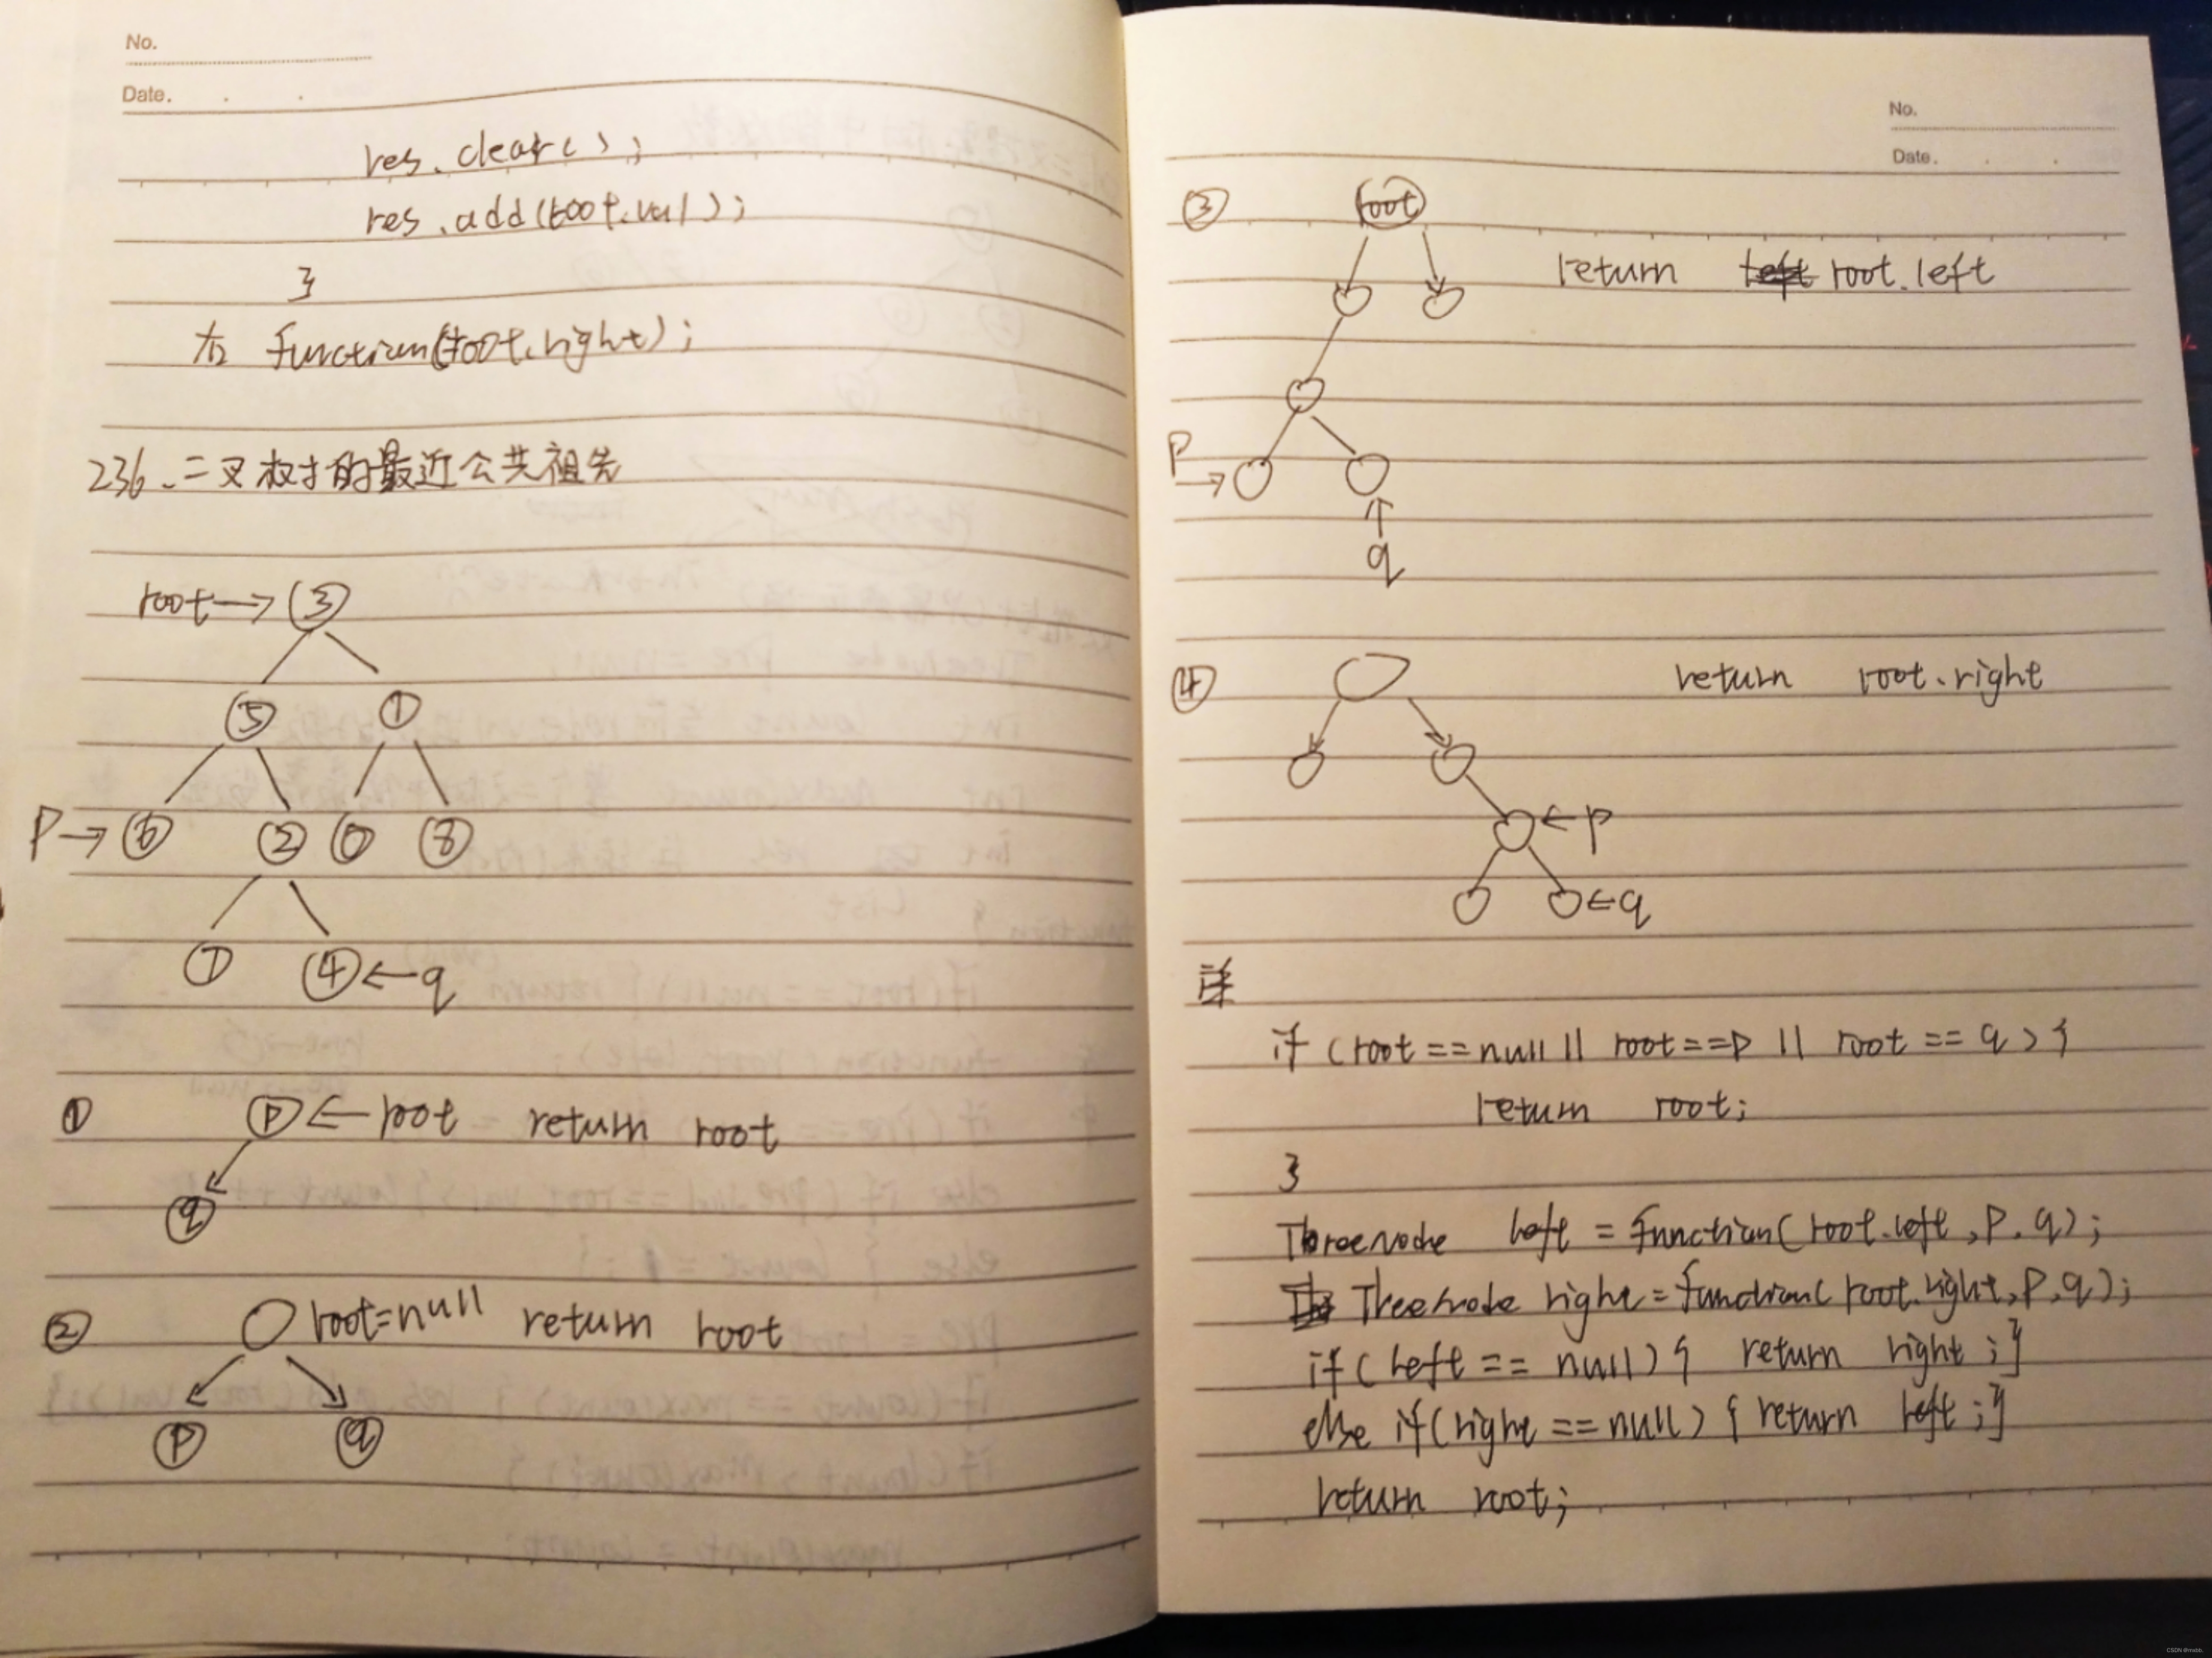 No.
Date.
res.clear();
res.add(root.val);
}
右 function(root.right);
236.二叉树的最近公共祖先
root→③
⑤ ①
P→⑥ ② ⓪ ⑧
⑦ ④←q
① P←root return root
q
② root=null return root
P q
No.
Date.
③ root
return root.left
P
q
④ return root.right
←P
←q
if (root==null || root==P || root == q){
return root;
}
TreeNode left = function(root.left,P,q);
TreeNode right=function(root.right,P,q);
if(left == null){ return right;}
else if(right == null){return left;}
return root;
CSDN @mxbb.